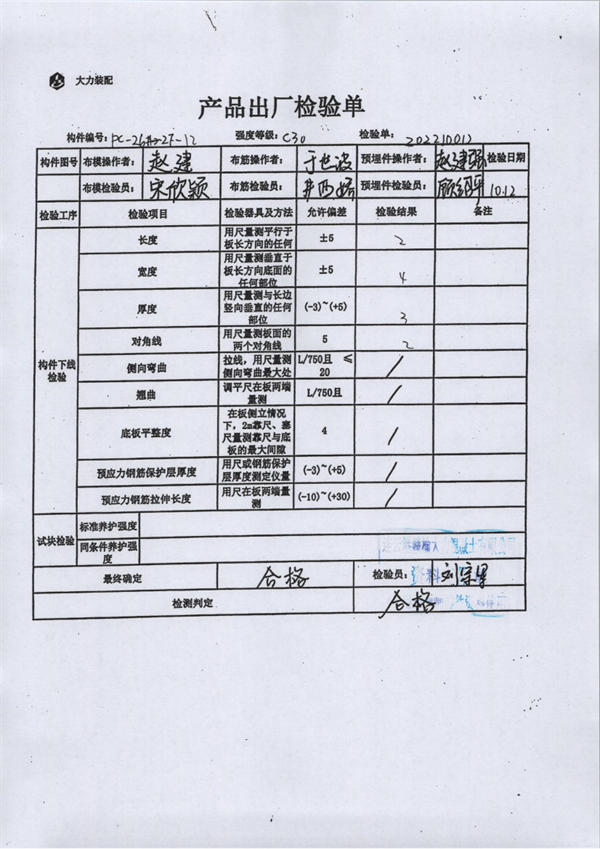 大力装配
产品出厂检验单
构件编号: PC-26#-2F-12 强度等级: C30 检验单: 20221012
构件图号 布模操作者: 赵建 布筋操作者: 预埋件操作者: 赵建强 检验日期
布模检验员: 宋欣颖 布筋检验员: 预埋件检验员: 10.12
检验工序 检验项目 检验器具及方法 允许偏差 检验结果 备注
构件下线检验
长度 用尺量测平行于板长方向的任何 ±5 2
宽度 用尺量测垂直于板长方向底面的任何部位 ±5 4
厚度 用尺量测与长边竖向垂直的任何部位 (-3)~(+5) 3
对角线 用尺量测板面的两个对角线 5 2
侧向弯曲 拉线，用尺量测侧向弯曲最大处 L/750且 ≤20 /
翘曲 调平尺在板两端量测 L/750且 /
底板平整度 在板侧立情况下，2m靠尺、塞尺量测靠尺与底板的最大间隙 4 /
预应力钢筋保护层厚度 用尺或钢筋保护层厚度测定仪量 (-3)~(+5) /
预应力钢筋拉伸长度 用尺在板两端量测 (-10)~(+30) /
试块检验 标准养护强度
同条件养护强度
最终确定 合格 检验员:
检测判定 合格